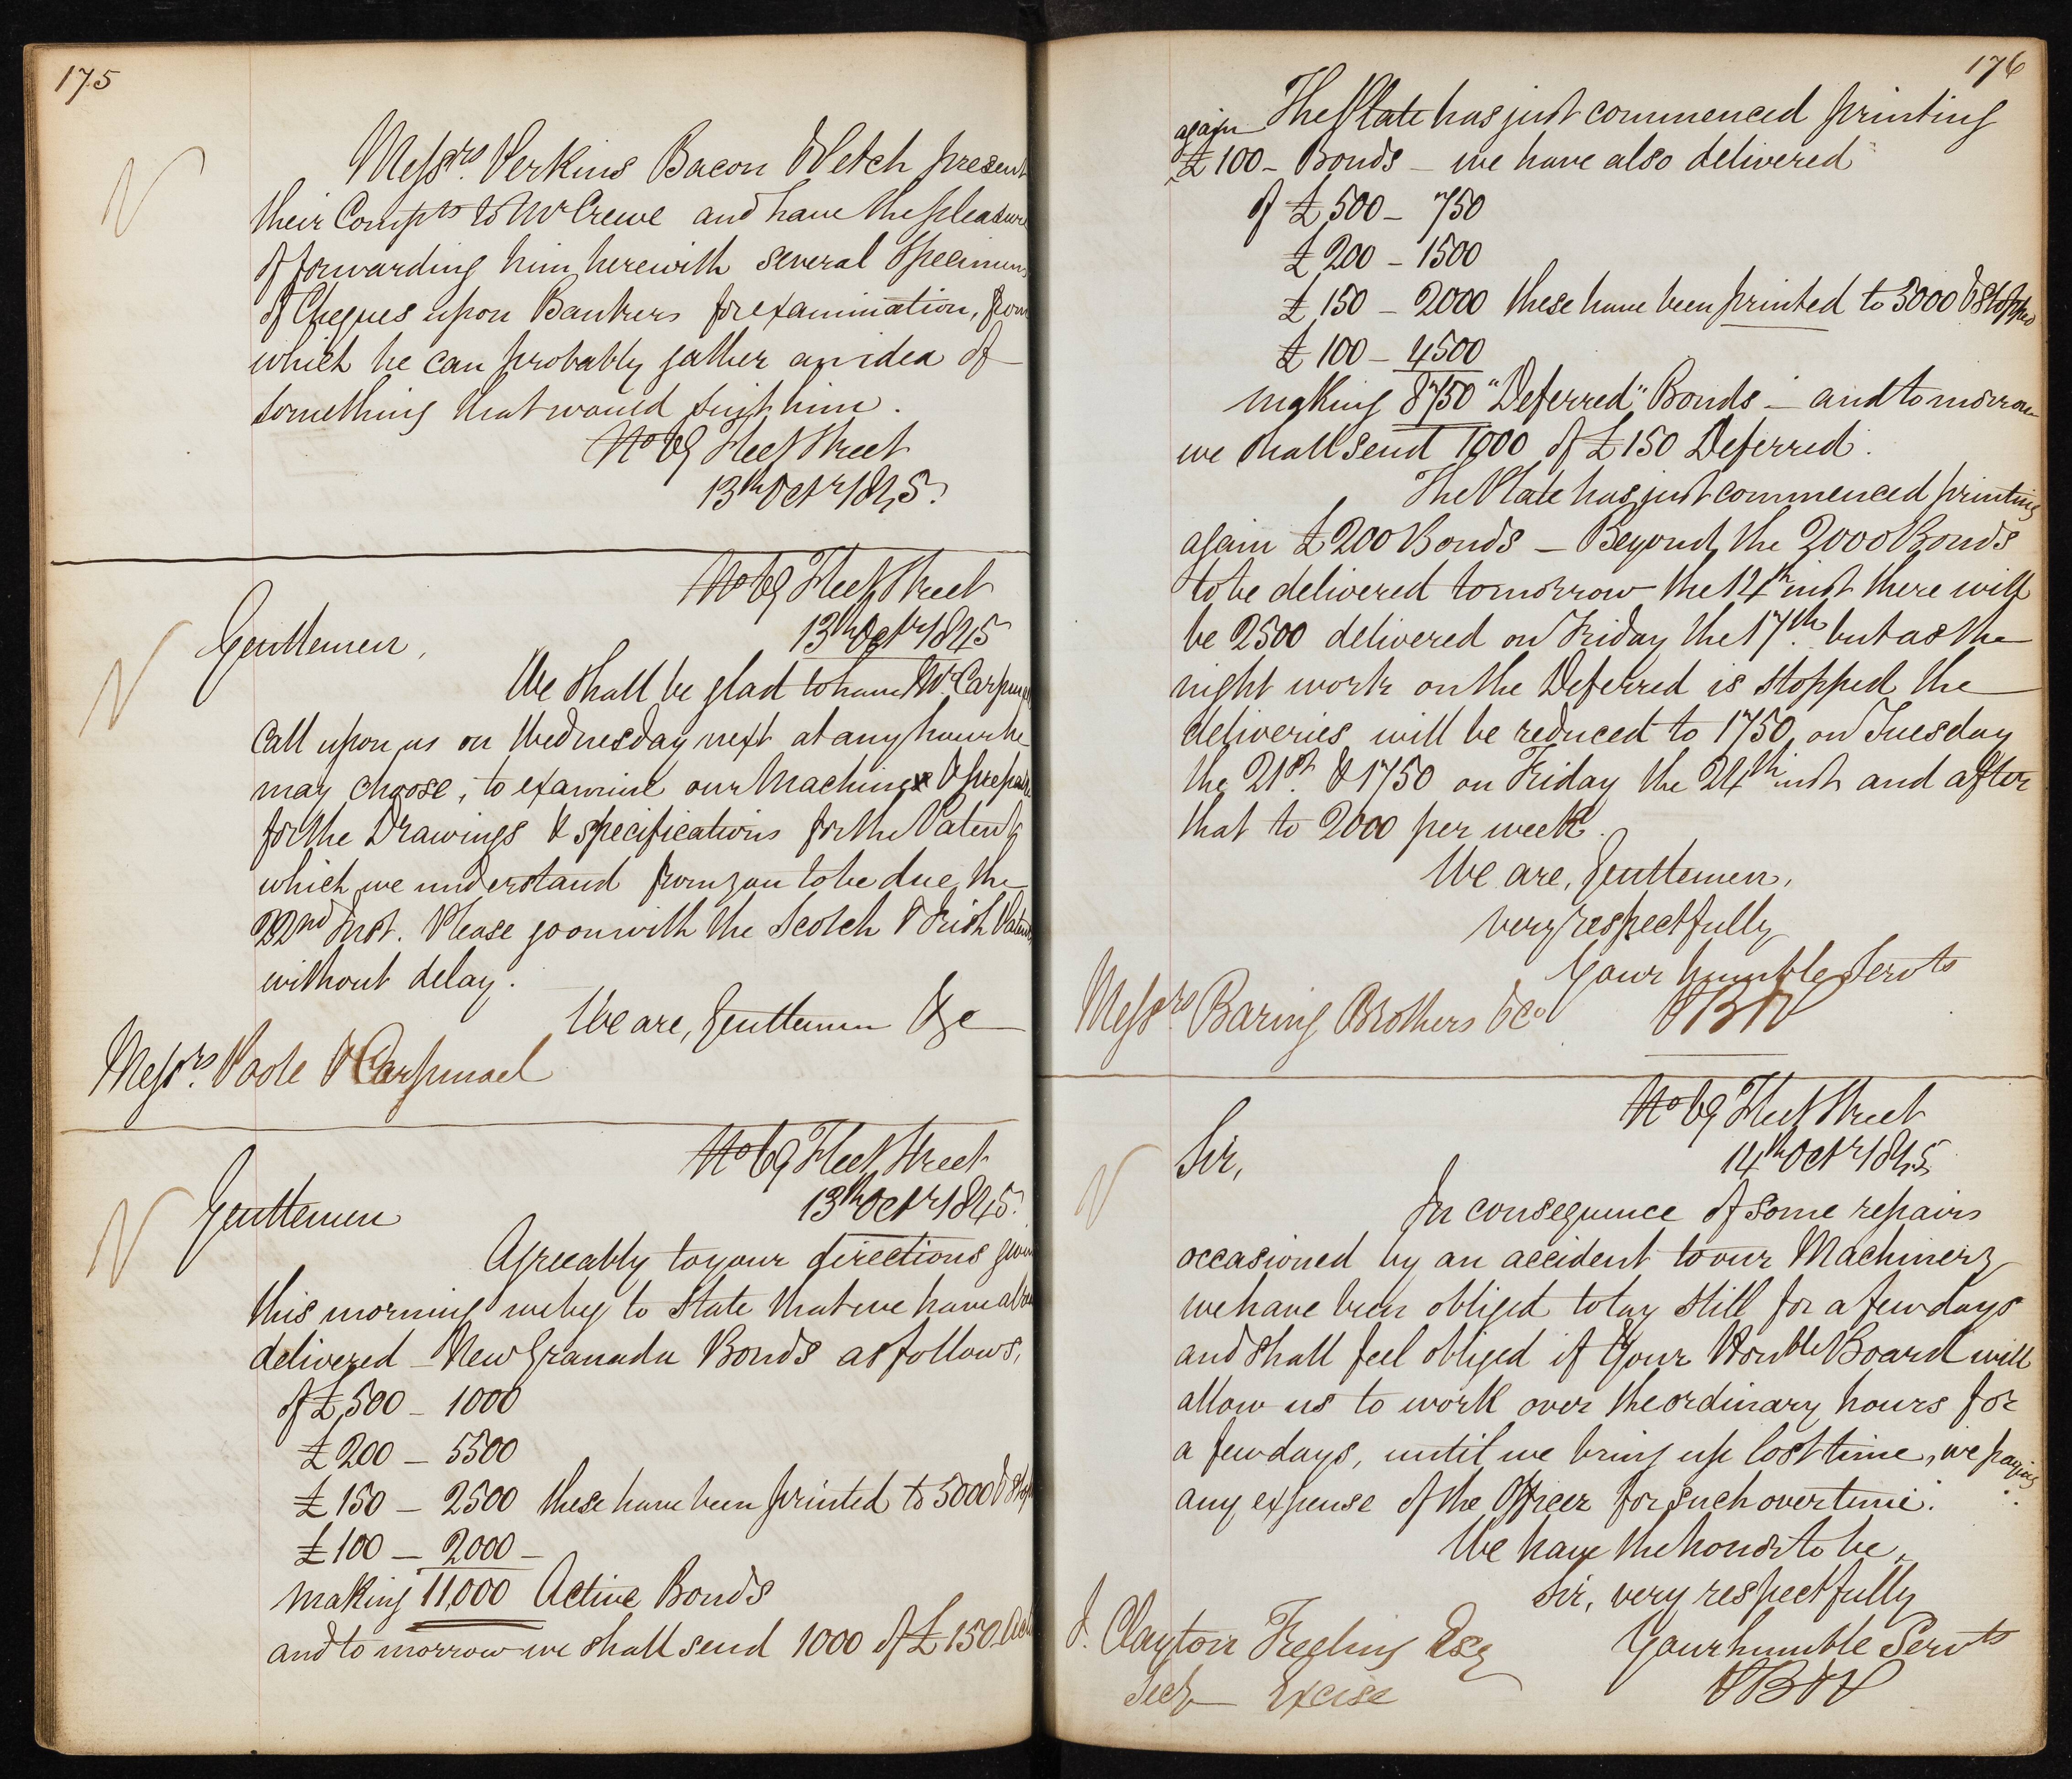 175
Messrs. Perkins Bacon & Petch present
their Compts to Mr Crewe and have the pleasure
of forwarding him herewith several Specimens
of Cheques upon Bankers for examination, from
which he can probably gather an idea of
something that would suit him.
No 69 Fleet Street
13th Octr 1845.
No 69 Fleet Street
13th Octr 1845
Gentlemen,
We shall be glad to have Mr Carpmael
call upon us on Wednesday next at any hour he
may choose, to examine our Machines & prepare
for the Drawings & specifications for the Patent,
which we understand from you to be due the
22nd Inst. Please go on with the Scotch & Irish Patents
without delay.
We are, Gentlemen &c
Messrs. Poole & Carpmael
No 69 Fleet Street
13th Octr 1845.
Gentlemen
Agreeably to your directions given
this morning we beg to state that we have
delivered New Granada Bonds as follows,
of £500 - 1000
£200 - 5500
£150 - 2500 these have been printed to 5000 &
£100 - 2000 -
making 11,000 Active Bonds
and to morrow we shall send 1000 of £150
176
The Plate has just commenced printing
again
£100 - Bonds - we have also delivered
of £500 - 750
£200 - 1500
£150 - 2000 these have been printed to 5000 & stopped
£100 - 4500
making 8750 "Deferred" Bonds - and to morrow
we shall send 1000 of £150 Deferred.
The Plate has just commenced printing
again £200 Bonds - Beyond the 2000 Bonds
to be delivered tomorrow the 14th inst there will
be 2500 delivered on Friday the 17th. but as the
night work on the Deferred is stopped the
deliveries will be reduced to 1750 on Tuesday
the 21st. & 1750 on Friday the 24th inst and after
that to 2000 per week.
We are, Gentlemen,
very respectfully
Your humble Servts
Messrs. Baring Brothers & Co
PB&P
No 69 Fleet Street
14th Octr 1845
Sir,
In consequence of some repairs
occasioned by an accident to our Machinery
we have been obliged to lay still for a few days
and shall feel obliged if Your Honble Board will
allow us to work over the ordinary hours for
a few days, until we bring up lost time, we paying
any expense of the Officer for such overtime.
We have the honor to be
Sir, very respectfully
Your humble Servts
PB&P
J. Clayton Freeling Esq
Secy Excise